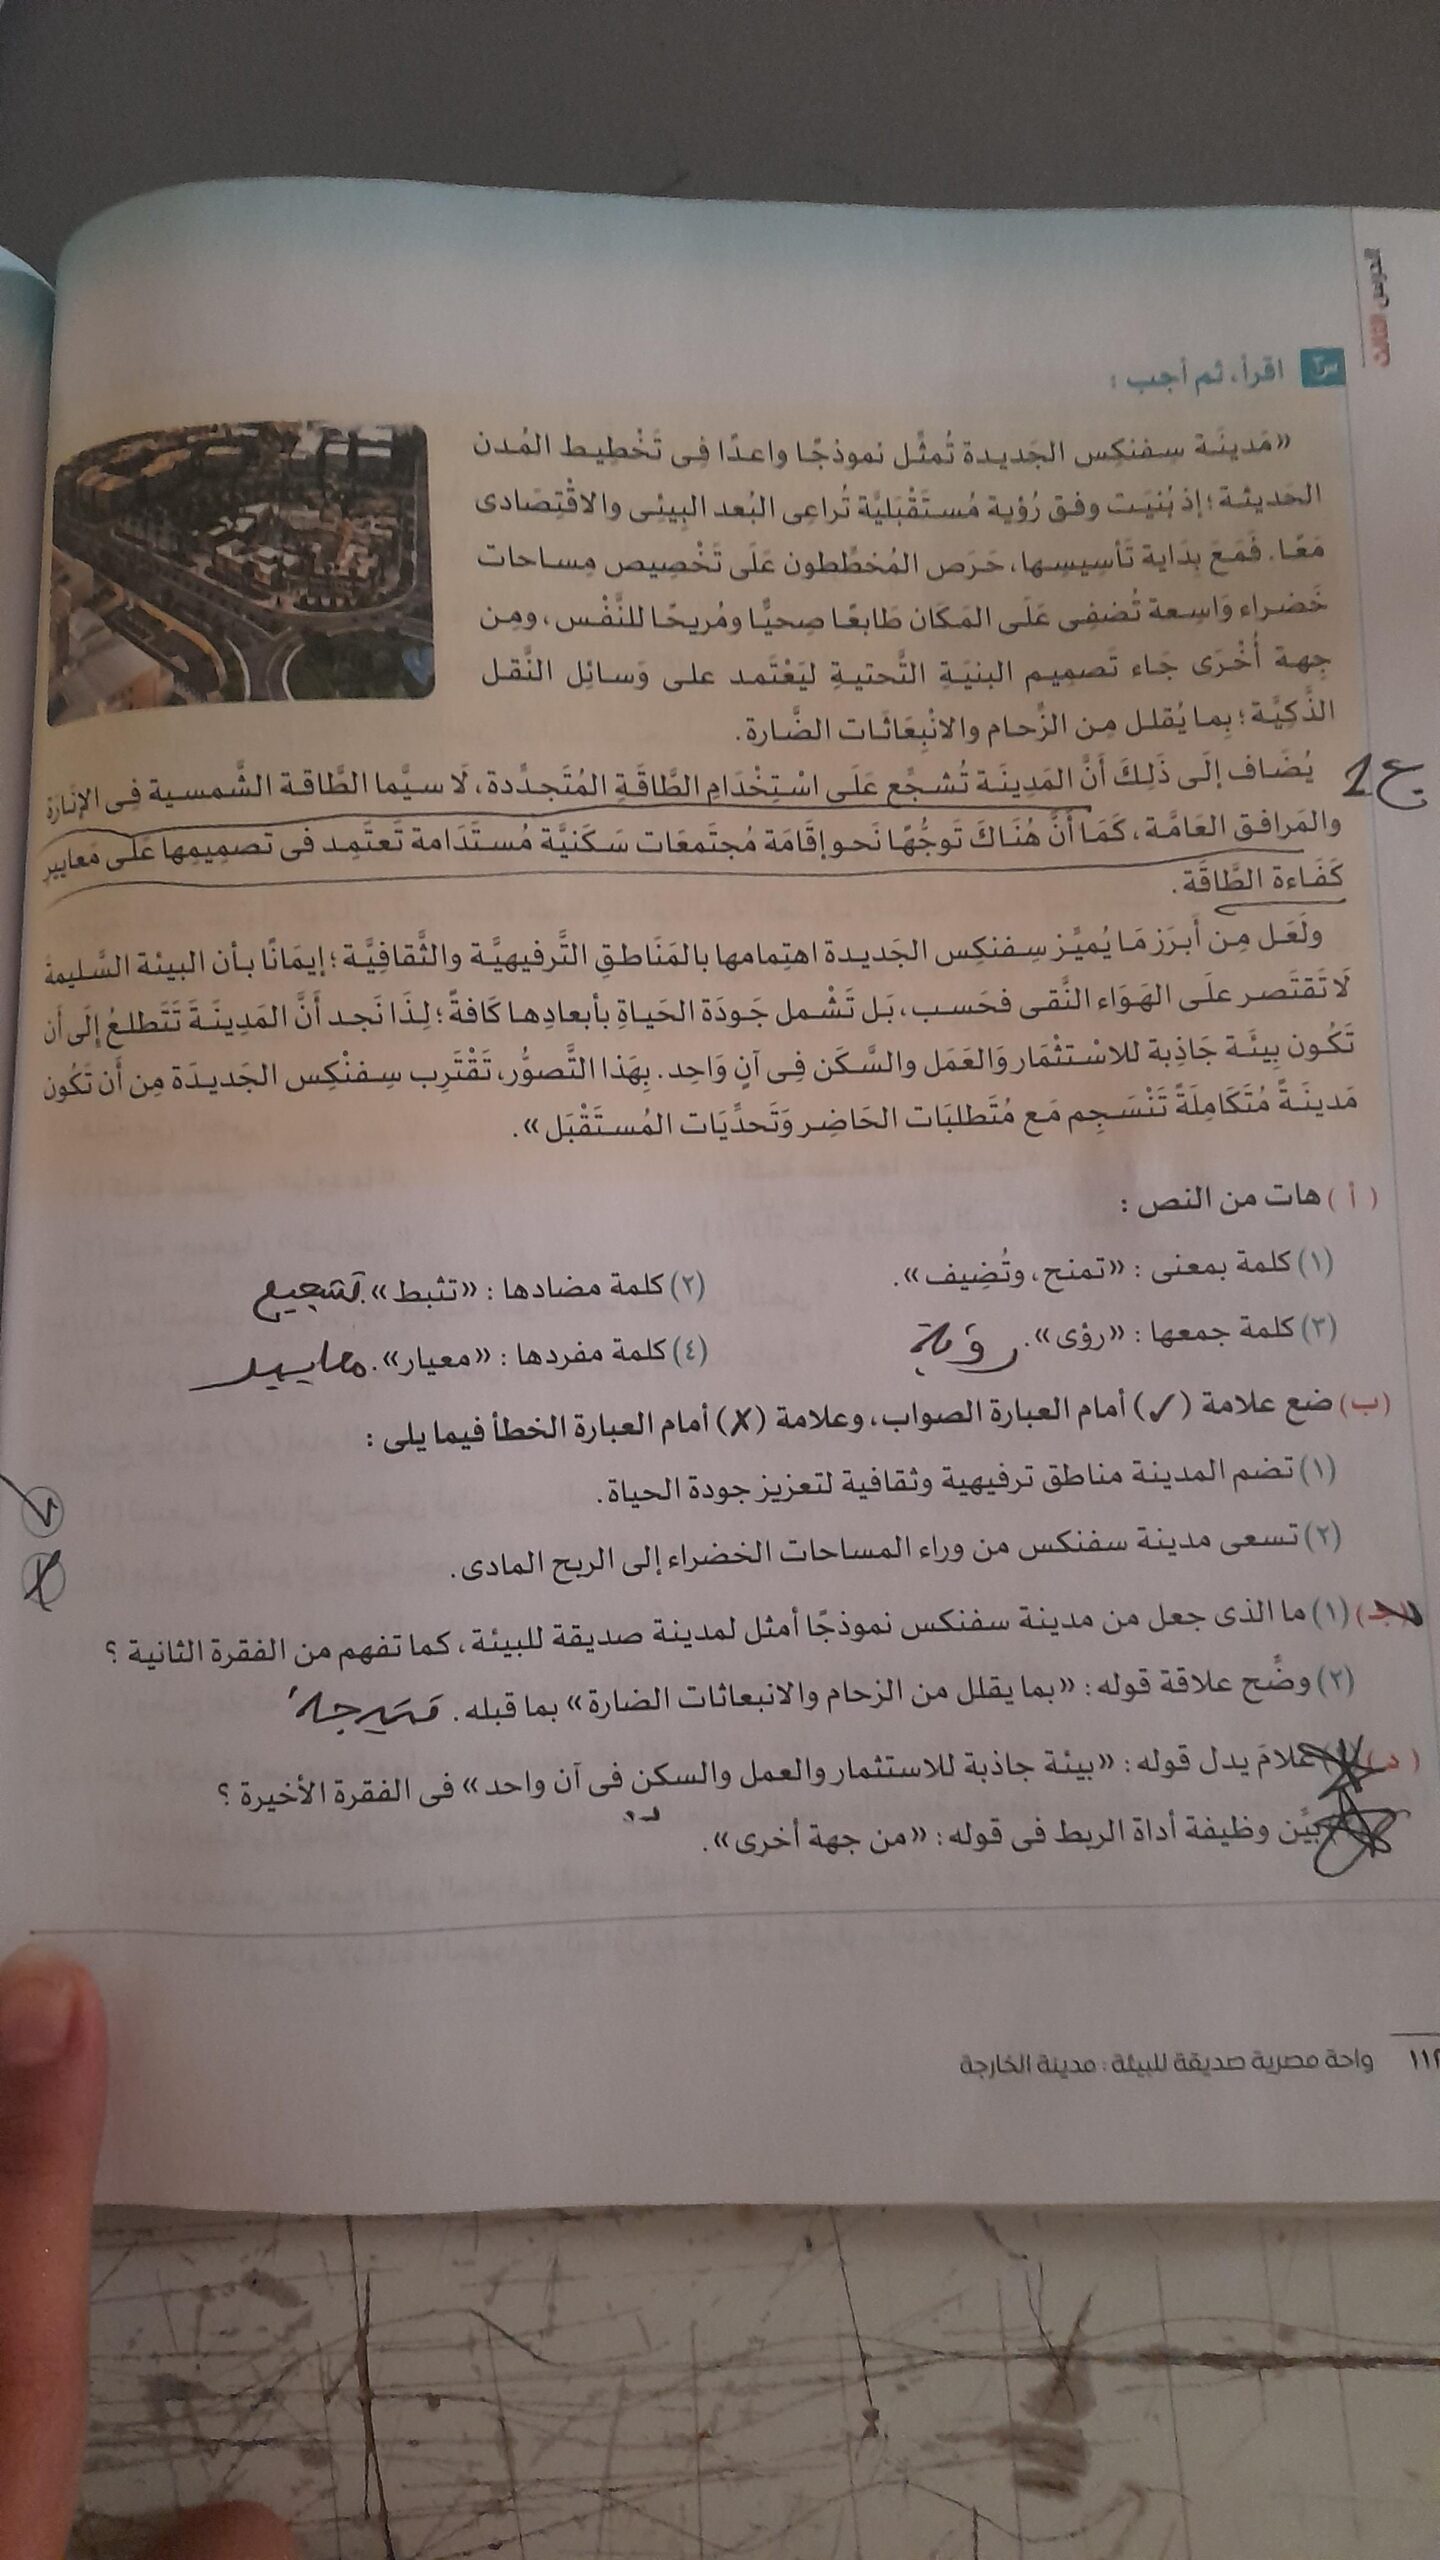 الدرس الثالث
س٣ اقرأ، ثم أجب :
«مَدينَة سِفنكِس الجَديدة تُمثِّل نموذجًا واعدًا فِى تَخْطِيط المُدن
الحَديثة ؛ إذ بُنيَت وفق رُؤية مُستَقْبَليَّة تُراعِى البُعد البِيئِى والاقْتِصَادى
مَعًا. فَمَعَ بِدَاية تَأسِيسِها، حَرَص المُخطِّطون عَلَى تَخْصِيص مِساحات
خَضراء وَاسِعة تُضفِى عَلَى المَكَان طَابعًا صِحيًّا ومُريحًا للنَّفْس، ومِن
جِهة أُخْرَى جَاء تَصمِيم البنيَةِ التَّحتيةِ ليَعْتَمد على وَسائِل النَّقل
الذَّكِيَّة ؛ بِما يُقلل مِن الزِّحام والانْبِعَاثَات الضَّارة.
يُضَاف إلَى ذَلِكَ أَنَّ المَدِينَة تُشجِّع عَلَى اسْتِخْدَامِ الطَّاقَةِ المُتَجدِّدة، لَا سيَّما الطَّاقة الشَّمسية فِى الإنَارَة
ع1
والمَرافق العَامَّة، كَمَا أنَّ هُنَاكَ تَوجُّهًا نَحو إقَامَة مُجتَمعَات سَكَنيَّة مُستَدَامة تَعتَمِد فى تصمِيمِها عَلَى مَعايير
كَفَاءة الطَّاقَة.
ولَعَل مِن أَبرَز مَا يُميِّز سِفنكِس الجَديدة اهتِمامها بالمَنَاطقِ التَّرفيهيَّة والثَّقافِيَّة ؛ إيمَانًا بأن البيئة السَّليمة
لَا تَقتَصر علَى الهَوَاء النَّقى فحَسب، بَل تَشْمل جَودَة الحَياةِ بأبعادِها كَافةً ؛ لِذَا نَجد أَنَّ المَدِينَةَ تَتَطلعُ إلَى أن
تَكُون بِيئَة جَاذِبة للاسْتثْمَار وَالعَمَل والسَّكَن فِى آنٍ وَاحِد. بِهَذا التَّصوُّر، تَقْتَرِب سِفنْكِس الجَديدَة مِن أَن تَكُون
مَدينَةً مُتَكَامِلَةً تَنْسَجِم مَع مُتَطلبَات الحَاضِر وَتَحدِّيَات المُستَقْبَل».
( أ ) هات من النص :
(١) كلمة بمعنى : «تمنح، وتُضِيف».
(٢) كلمة مضادها : «تثبط». تشجيع
(٣) كلمة جمعها : «رؤى». رؤية
(٤) كلمة مفردها : «معيار». معايير
(ب) ضع علامة (✓) أمام العبارة الصواب، وعلامة (✗) أمام العبارة الخطأ فيما يلى :
(١) تضم المدينة مناطق ترفيهية وثقافية لتعزيز جودة الحياة. ✓
(٢) تسعى مدينة سفنكس من وراء المساحات الخضراء إلى الربح المادى. ✗
(جـ) (١) ما الذى جعل من مدينة سفنكس نموذجًا أمثل لمدينة صديقة للبيئة، كما تفهم من الفقرة الثانية ؟
(٢) وضِّح علاقة قوله : «بما يقلل من الزحام والانبعاثات الضارة» بما قبله.
( د ) علامَ يدل قوله : «بيئة جاذبة للاستثمار والعمل والسكن فى آن واحد» فى الفقرة الأخيرة ؟
بيِّن وظيفة أداة الربط فى قوله : «من جهة أخرى».
واحة مصرية صديقة للبيئة : مدينة الخارجة